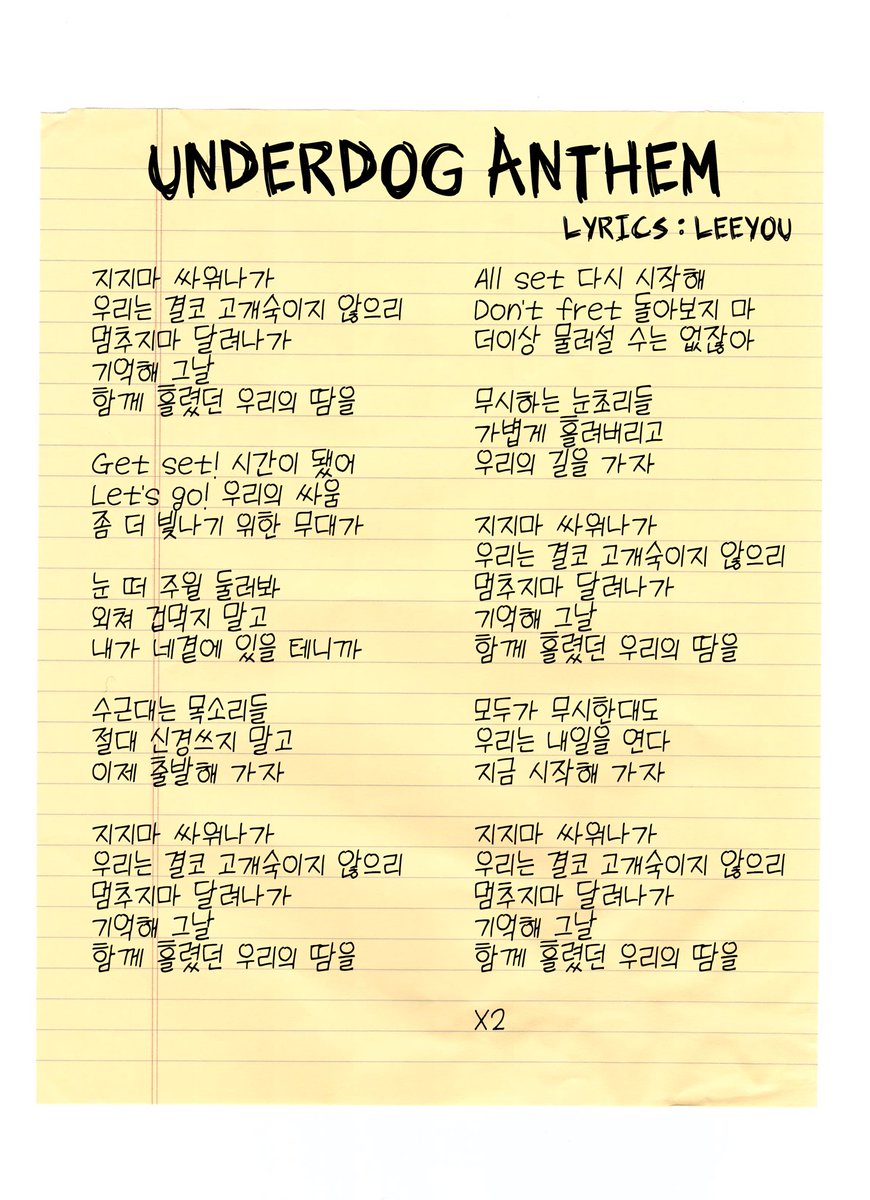 UNDERDOG ANTHEM
LYRICS : LEEYOU
지지마 싸워나가
우리는 결코 고개숙이지 않으리
멈추지마 달려나가
기억해 그날
함께 흘렸던 우리의 땀을
Get set! 시간이 됐어
Let's go! 우리의 싸움
좀 더 빛나기 위한 무대가
눈 떠 주월 둘러봐
외쳐 겁먹지 말고
내가 네곁에 있을 테니까
수근대는 목소리들
절대 신경쓰지 말고
이제 출발해 가자
지지마 싸워나가
우리는 결코 고개숙이지 않으리
멈추지마 달려나가
기억해 그날
함께 흘렸던 우리의 땀을
All set 다시 시작해
Don't fret 돌아보지 마
더이상 물러설 수는 없잖아
무시하는 눈초리들
가볍게 흘려버리고
우리의 길을 가자
지지마 싸워나가
우리는 결코 고개숙이지 않으리
멈추지마 달려나가
기억해 그날
함께 흘렸던 우리의 땀을
모두가 무시한대도
우리는 내일을 연다
지금 시작해 가자
지지마 싸워나가
우리는 결코 고개숙이지 않으리
멈추지마 달려나가
기억해 그날
함께 흘렸던 우리의 땀을
X2